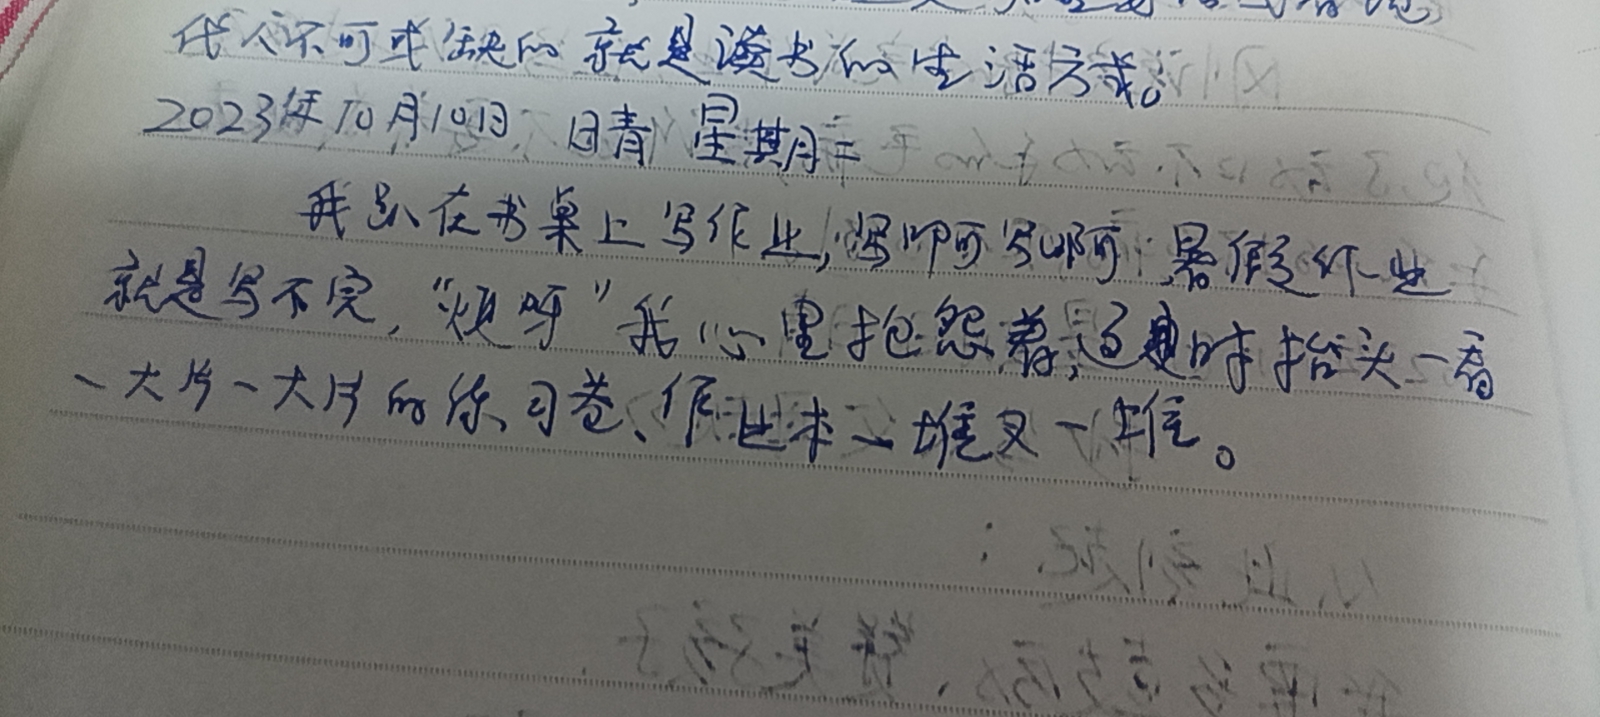 代人不可或缺的就是读书的生活方式。
2023年10月10日 晴 星期二
我趴在书桌上写作业,写啊写啊,暑假作业
就是写不完,“烦呀”我心里抱怨着,这时抬头一看
一大片一大片的练习卷、作业本一堆又一堆。